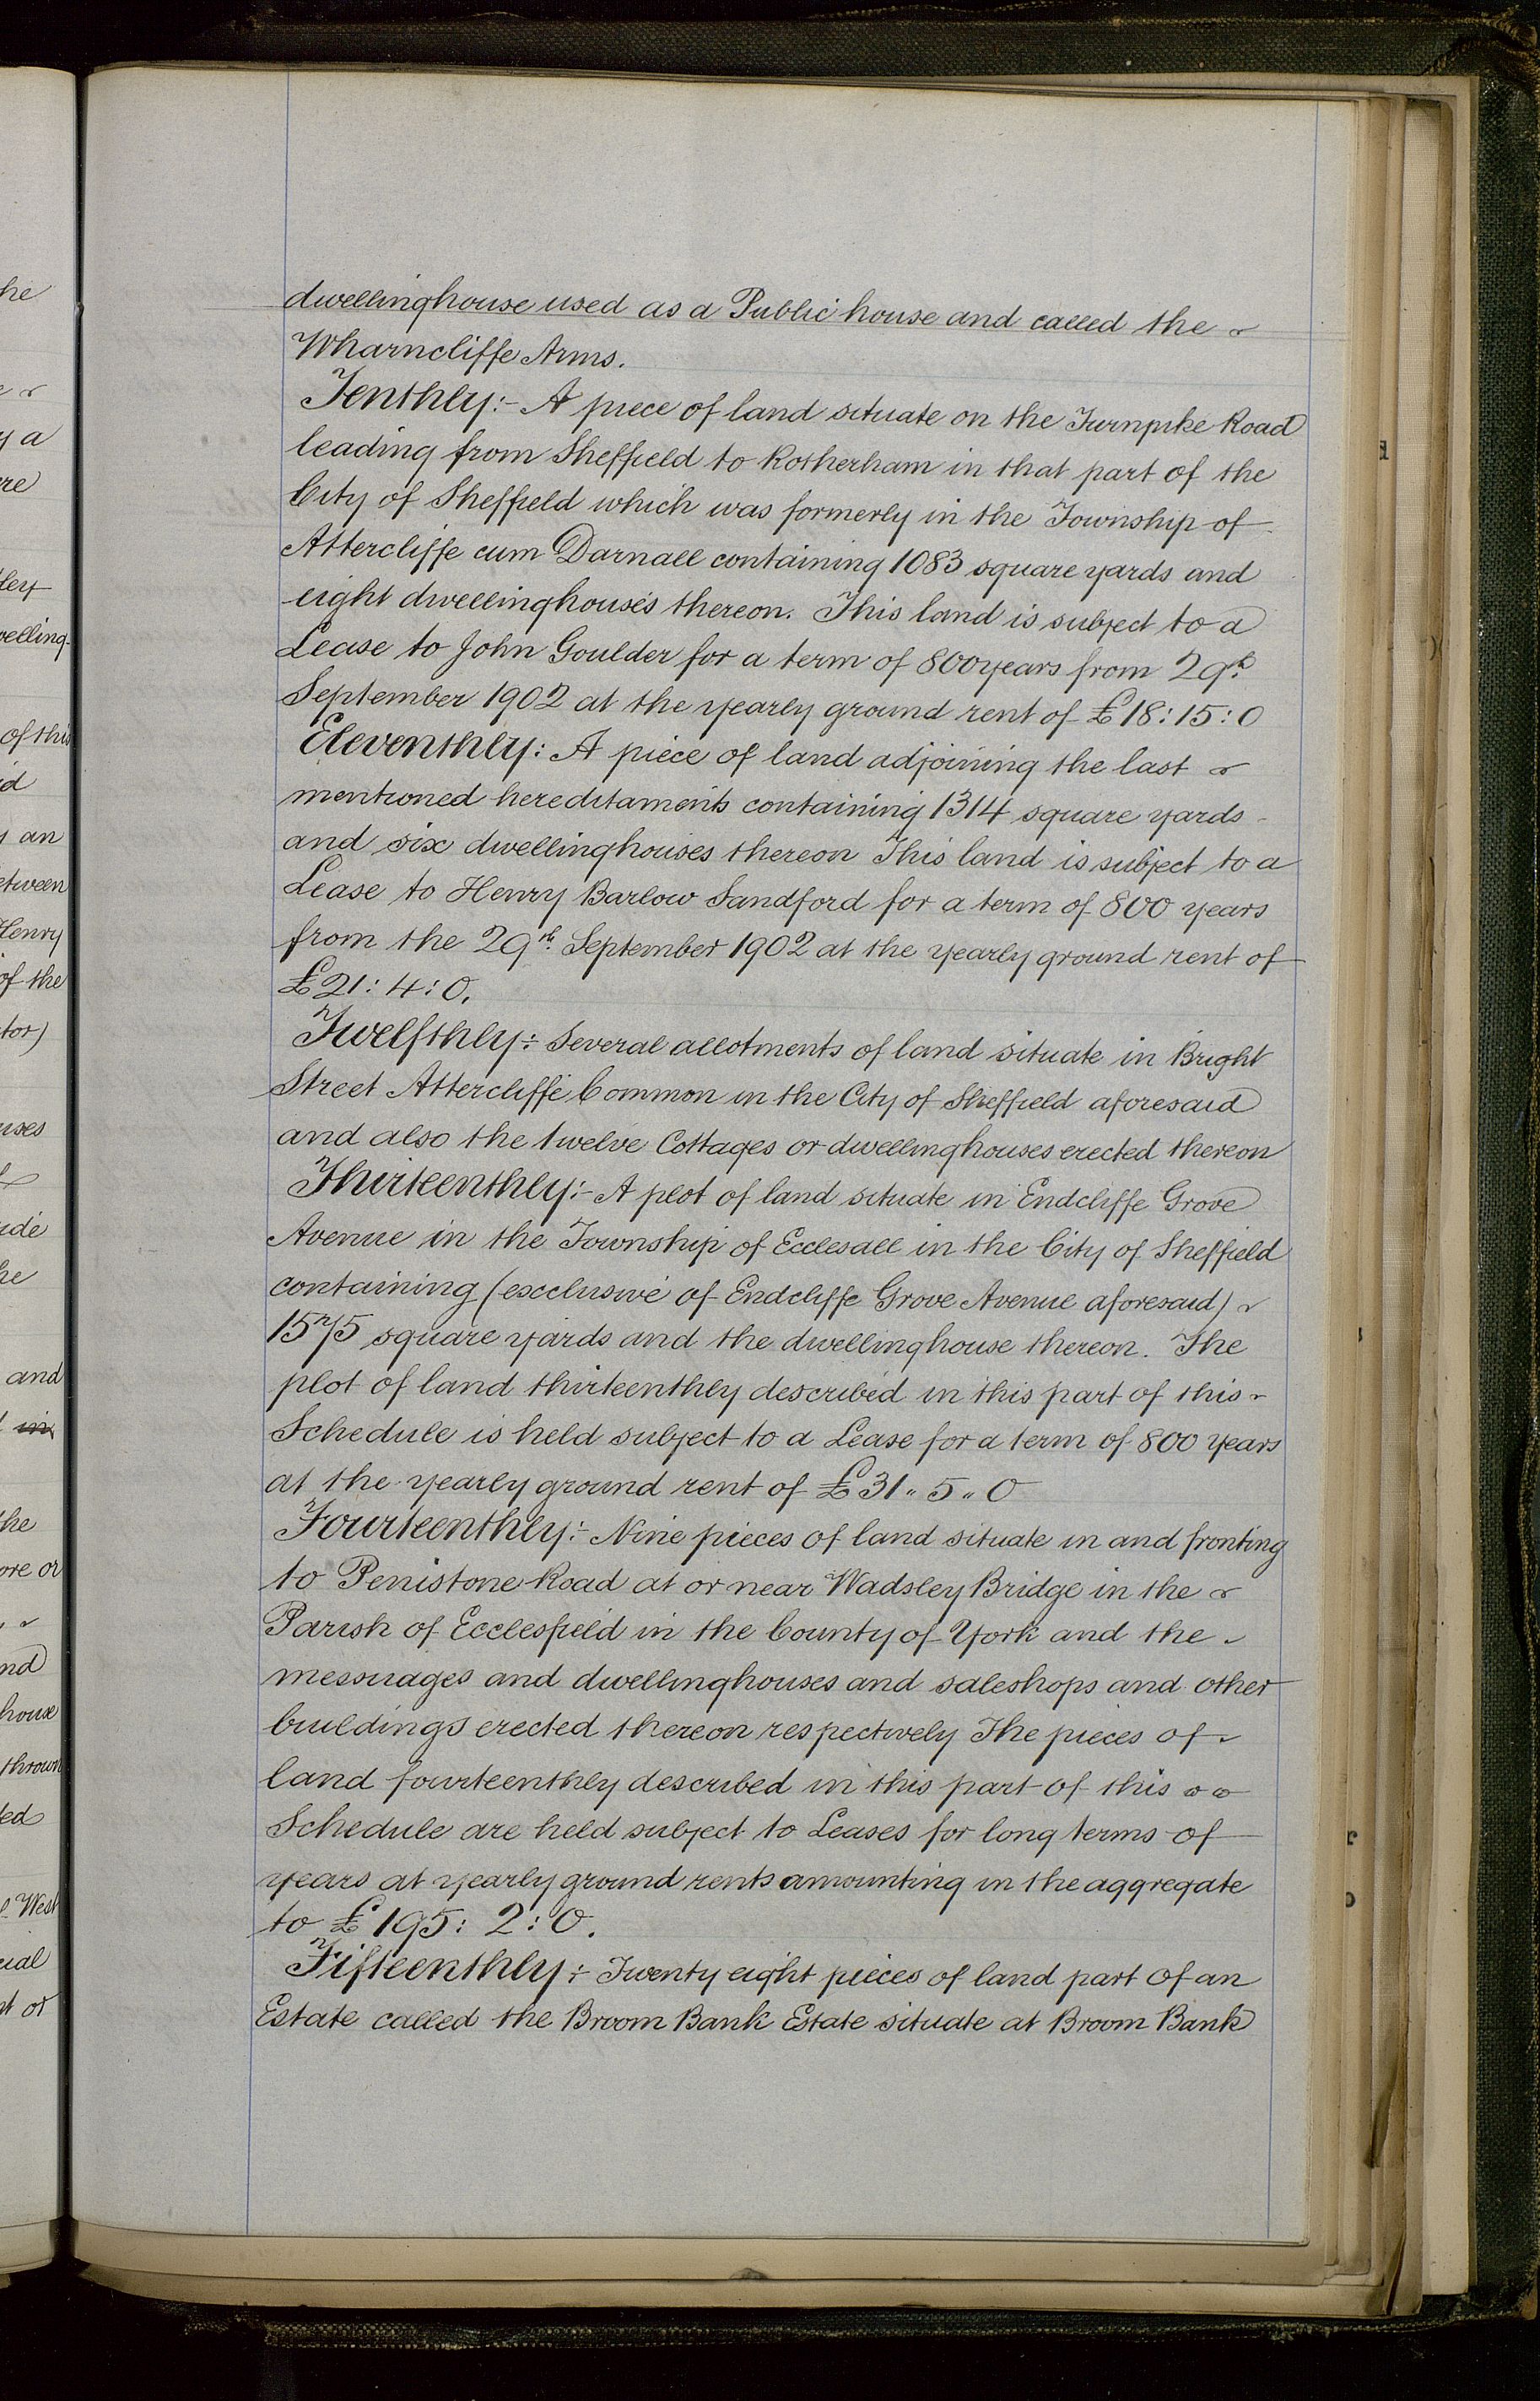 dwellinghouse used as a Public house and called the
Wharncliffe Arms.
Tenthly:- A piece of land situate on the Turnpike Road
leading from Sheffield to Rotherham in that part of the
City of Sheffield which was formerly in the Township of
Attercliffe cum Darnall containing 1083 square yards and
eight dwellinghouses thereon. This land is subject to a
Lease to John Goulder for a term of 800 years from 29th
September 1902 at the yearly ground rent of £18:15:0
Eleventhly: A piece of land adjoining the last
mentioned hereditaments containing 1314 square yards
and six dwellinghouses thereon This land is subject to a
Lease to Henry Barlow Sandford for a term of 800 years
from the 29th September 1902 at the yearly ground rent of
£21:4:0.
Twelfthly:- Several allotments of land situate in Bright
Street Attercliffe Common in the City of Sheffield aforesaid
and also the twelve Cottages or dwellinghouses erected thereon
Thirteenthly:- A plot of land situate in Endcliffe Grove
Avenue in the Township of Ecclesall in the City of Sheffield
containing (exclusive of Endcliffe Grove Avenue aforesaid)
1575 square yards and the dwellinghouse thereon. The
plot of land thirteenthly described in this part of this
Schedule is held subject to a Lease for a term of 800 years
at the yearly ground rent of £31„5„0
Fourteenthly:- Nine pieces of land situate in and fronting
to Penistone Road at or near Wadsley Bridge in the
Parish of Ecclesfield in the County of York and the
messuages and dwellinghouses and saleshops and other
buildings erected thereon respectively The pieces of
land fourteenthly described in this part of this
Schedule are held subject to Leases for long terms of
years at yearly ground rents amounting in the aggregate
to £195:2:0.
Fifteenthly:- Twenty eight pieces of land part of an
Estate called the Broom Bank Estate situate at Broom Bank